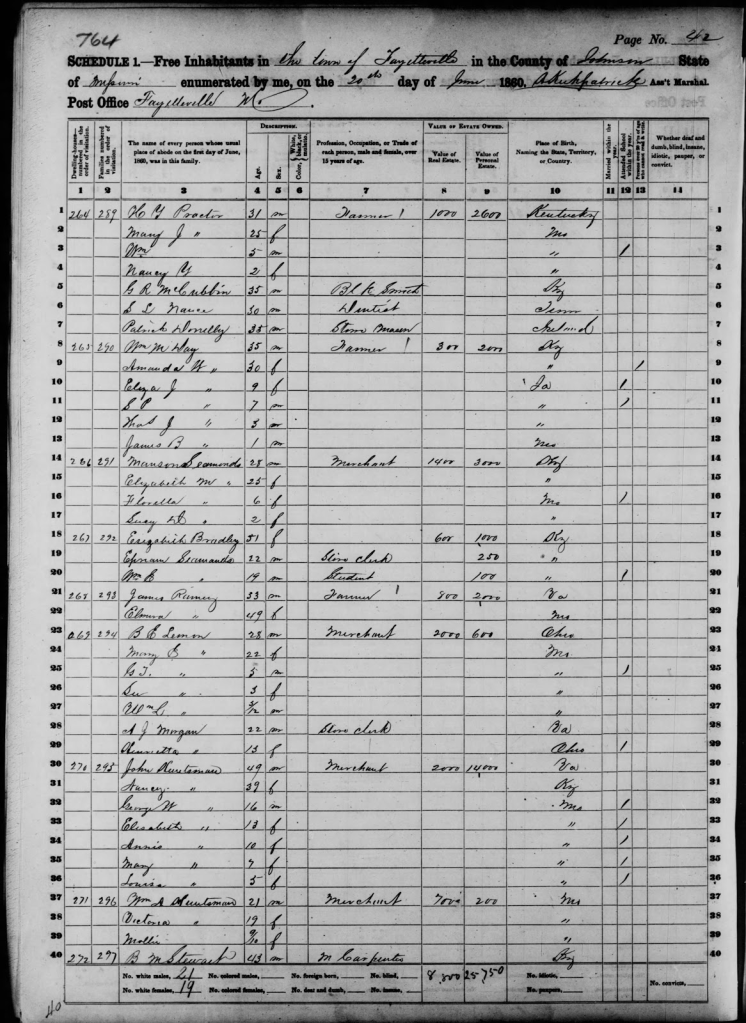 764
Page No. 42
SCHEDULE 1.—Free Inhabitants in the town of Fayetteville in the County of Johnson State
of Missouri enumerated by me, on the 20th day of June 1860, A Kirkpatrick Ass't Marshal.
Post Office Fayetteville Mo.
DESCRIPTION. VALUE OF ESTATE OWNED.
Dwelling-houses—numbered in the order of visitation. Families numbered in the order of visitation. The name of every person whose usual place of abode on the first day of June, 1860, was in this family. Age. Sex. Color, White, black, or mulatto. Profession, Occupation, or Trade of each person, male and female, over 15 years of age. Value of Real Estate. Value of Personal Estate. Place of Birth, Naming the State, Territory, or Country. Married within the year. Attended School within the year. Whether deaf and dumb, blind, insane, idiotic, pauper, or convict.
1 2 3 4 5 6 7 8 9 10 11 12 13 14
1 264 289 Proctor 31 m Farmer 1000 2600 Kentucky 1
2 Mary J " 25 f Mo 2
3 Wm 5 m " / 3
4 Nancy Y 2 f " 4
5 G R McCubbin 35 m Blk Smith Ky 5
6 S L Nance 30 m Dentist Tenn 6
7 Patrick Donelly 35 m Stone Mason Ireland 7
8 265 290 Wm M Day 35 m Farmer 300 200 Ky 8
9 Amanda W " 30 f " / 9
10 Eliza J " 9 f Ia / 10
11 S P " 7 m " / 11
12 Thos J " 3 m " 12
13 James B " 1 m Mo 13
14 266 291 Manson Seamonds 28 m Merchant 1400 3000 Ky 14
15 Elizabeth M " 25 f " 15
16 Floretta " 6 f Mo / 16
17 Lucy " 2 f " 17
18 267 292 Elizabeth Bradley 51 f 600 1000 Ky 18
19 Ephram Seamonds 22 m Store clerk 250 " " 19
20 Wm E " 19 m Student 100 " / 20
21 268 293 James Ramey 53 m Farmer 800 2000 Va 21
22 Elmira " 49 f Mo 22
23 269 294 B E Lemon 28 m Merchant 2000 600 Ohio 23
24 Mary E " 22 f Mo 24
25 " 5 m " / 25
26 " 3 f " 26
27 Wm L " m " 27
28 A J Morgan 22 m Store clerk Va 28
29 Henrietta " 13 f Ohio / 29
30 270 295 John Huntsman 49 m Merchant 2000 14000 Va 30
31 Nancy " 39 f Ky 31
32 George W " 16 m Mo / 32
33 Elisabeth " 13 f " / 33
34 Annie " 10 f " / 34
35 Mary " 7 f " / 35
36 Louisa " 5 f " / 36
37 271 296 Wm A Huntsman 21 m Merchant 700 200 Mo 37
38 Victoria " 19 f " 38
39 Mollie f " 39
40 272 297 B M Stewart 43 m M Carpenter Ky 40
No. white males, 21 No. colored males, No. foreign born, No. blind, 8,800 25750 No. idiotic, No. convicts,
No. white females, 19 No. colored females, No. deaf and dumb, No. insane, No. paupers,
40